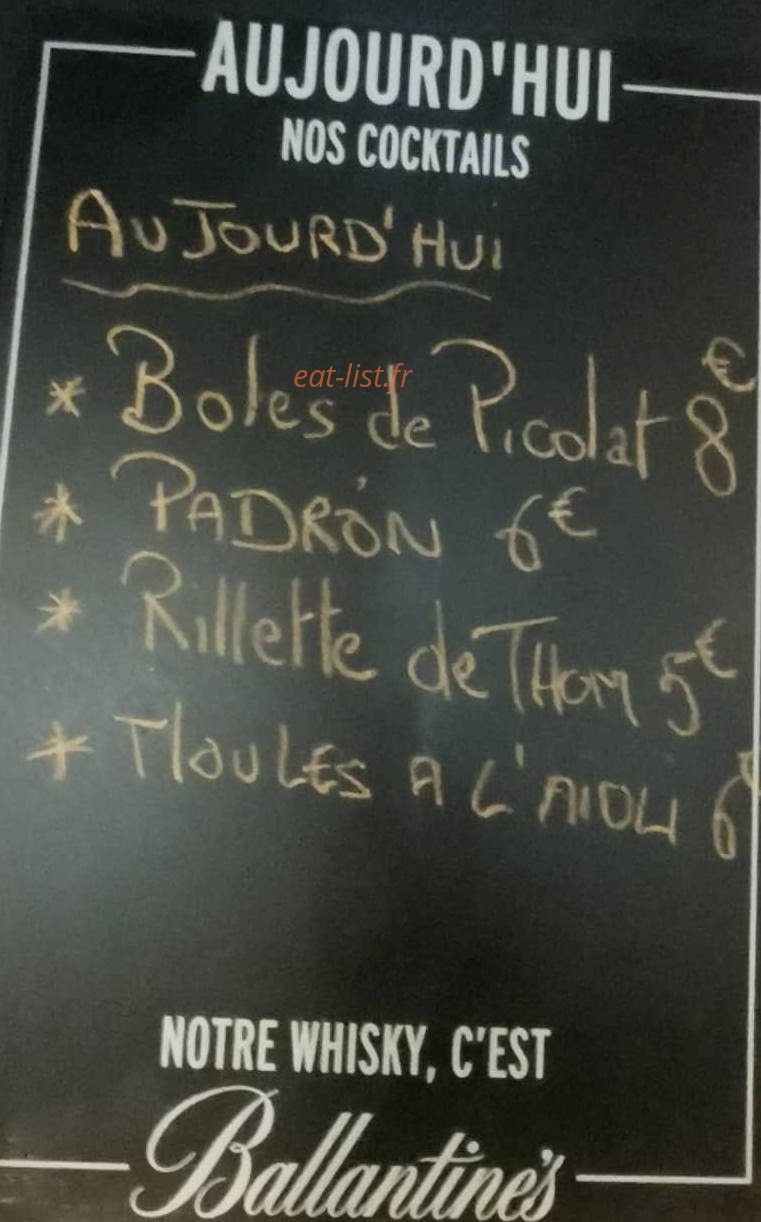 AUJOURD'HUI
NOS COCKTAILS
AUJOURD'HUI
* Boles de Picolat 8€
eat-list.fr
* PADRÓN 6€
* Rillette de THON 5€
* MOULES A L'AIOLI 6€
NOTRE WHISKY, C'EST
Ballantine's